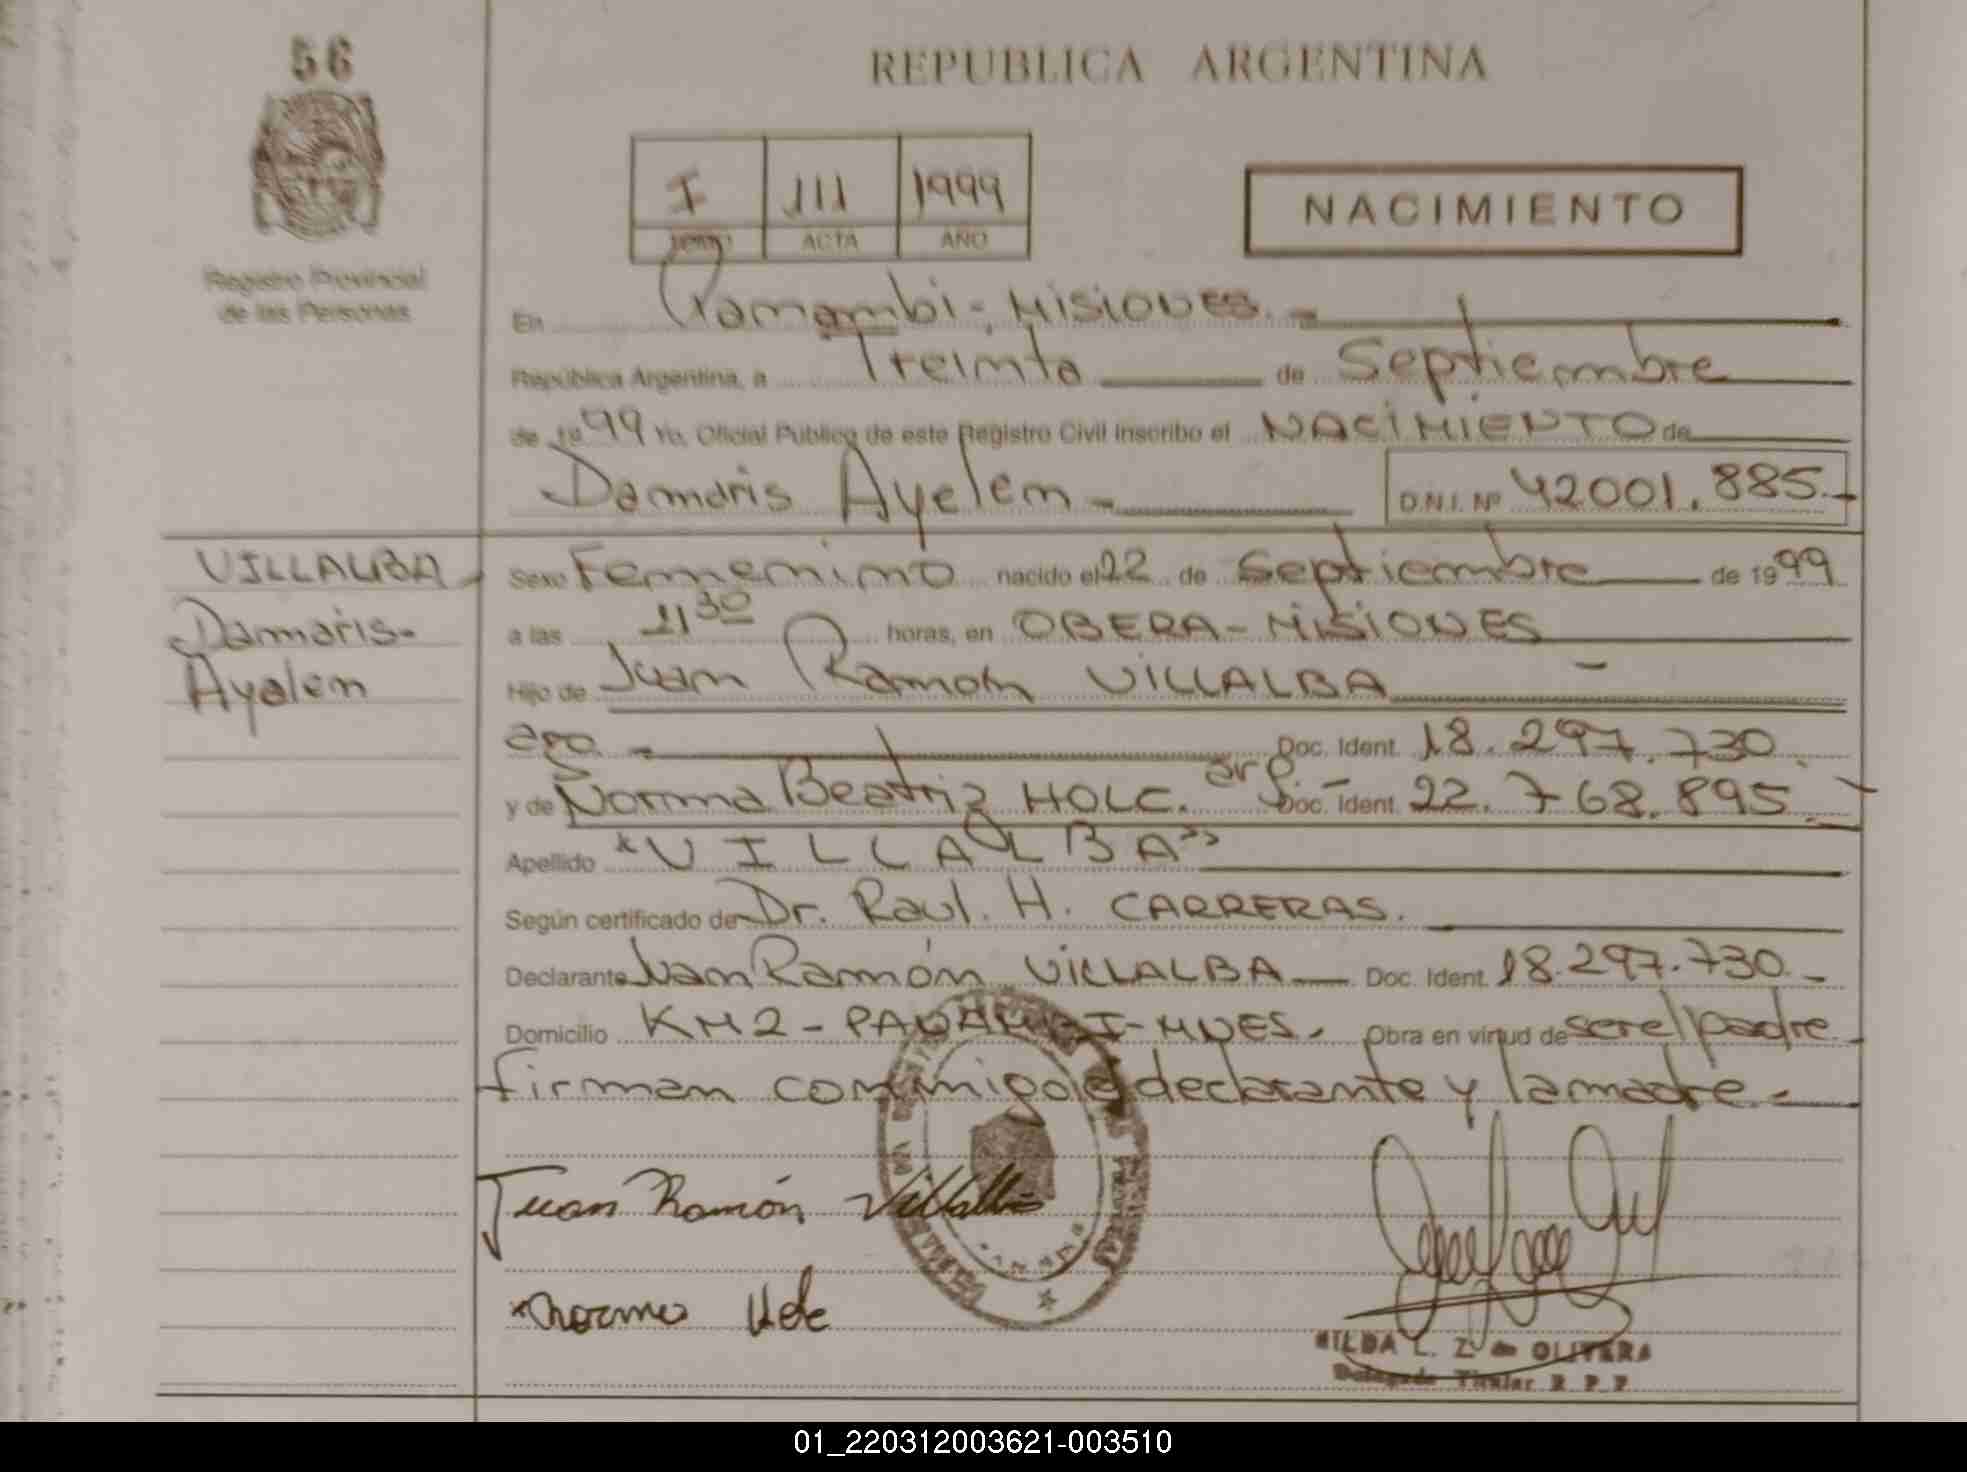 56
REPUBLICA ARGENTINA
I 111 1999
TOMO ACTA AÑO
NACIMIENTO
Registro Provincial
de las Personas
En Panambi - MISIONES.-
República Argentina, a Treinta de Septiembre
de 1999 Yo, Oficial Público de este Registro Civil inscribo el NACIMIENTO de
Damaris Ayelem - D.N.I. Nº 42001.885.-
VILLALBA
Damaris-
Ayelem
Sexo Femenino nacido el 22 de Septiembre de 1999
a las 11 30 horas, en OBERA - MISIONES
Hijo de Juan Ramon VILLALBA -
arg. - Doc. Ident. 18.297.730.
y de Norma Beatriz HOLC. arg.- Doc. Ident. 22.768.895.-
Apellido "VILLALBA"
Según certificado de Dr. Raul. H. CARRERAS.
Declarante Juan Ramón VILLALBA - Doc. Ident. 18.297.730.-
Domicilio KM2 - PANAMBI - MNES.- Obra en virtud de ser el padre
firman conmigo el declarante y la madre.-
Juan Ramón Villalba
Norma
HILDA L. Z. de OLIVERA
Delegada Titular R P P
01_220312003621-003510